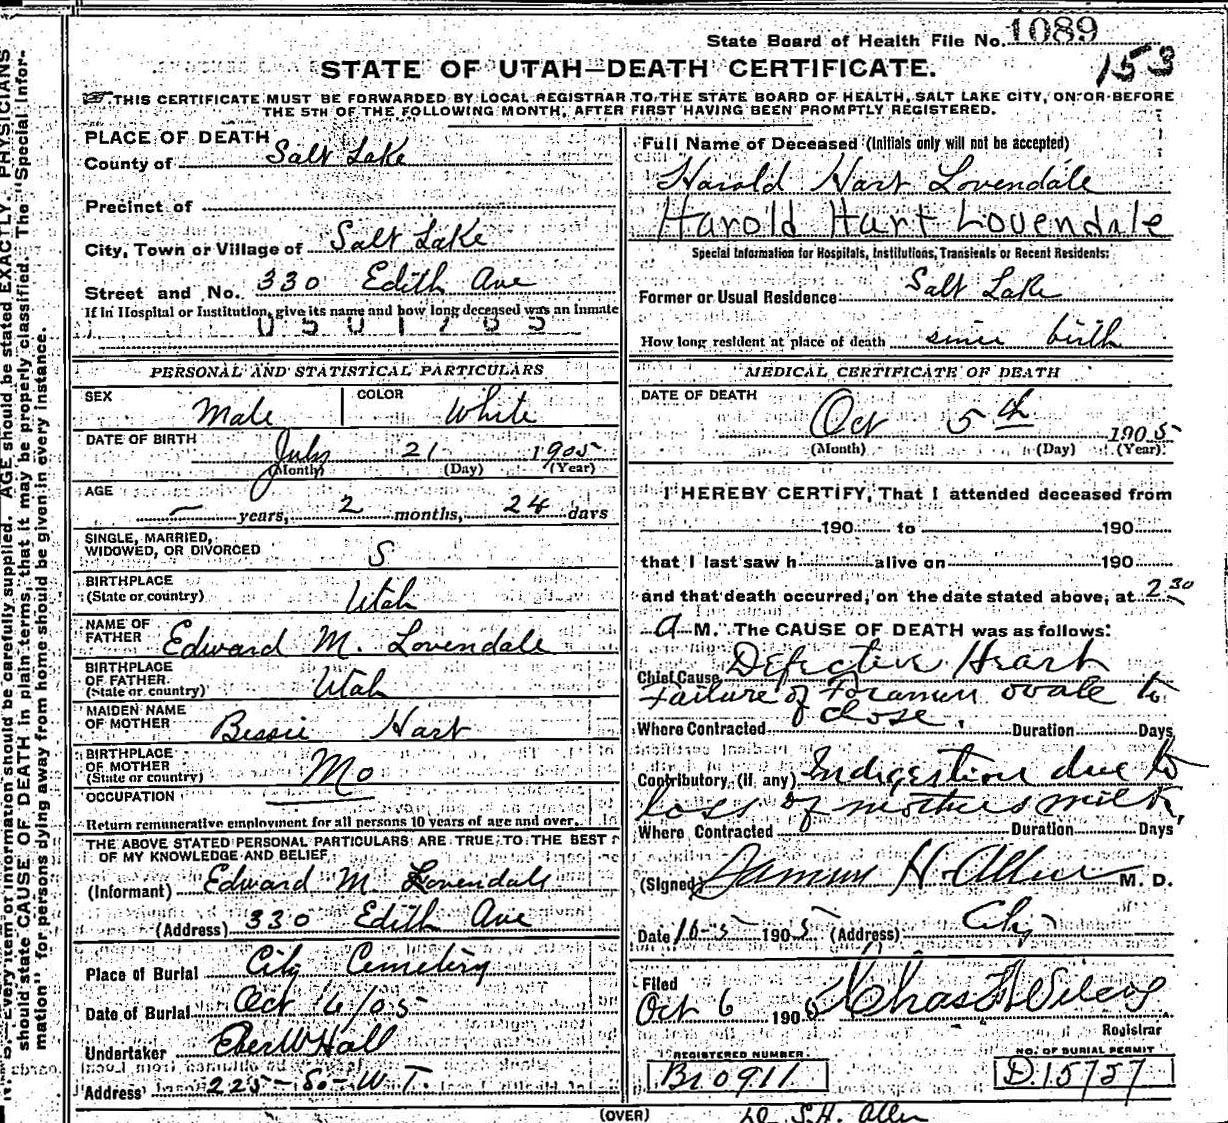 State Board of Health File No. 1089
153
STATE OF UTAH—DEATH CERTIFICATE.
THIS CERTIFICATE MUST BE FORWARDED BY LOCAL REGISTRAR TO THE STATE BOARD OF HEALTH, SALT LAKE CITY, ON OR BEFORE
THE 5TH OF THE FOLLOWING MONTH, AFTER FIRST HAVING BEEN PROMPTLY REGISTERED.
PLACE OF DEATH
County of Salt Lake
Precinct of
City, Town or Village of Salt Lake
Street and No. 330 Edith Ave
If in Hospital or Institution, give its name and how long deceased was an inmate
0501765
PERSONAL AND STATISTICAL PARTICULARS
SEX Male COLOR White
DATE OF BIRTH July 21 1905
(Month) (Day) (Year)
AGE — years, 2 months, 24 days
SINGLE, MARRIED,
WIDOWED, OR DIVORCED S
BIRTHPLACE
(State or country) Utah
NAME OF
FATHER Edward M. Lovendale
BIRTHPLACE
OF FATHER
(State or country) Utah
MAIDEN NAME
OF MOTHER Bessie Hart
BIRTHPLACE
OF MOTHER
(State or country) Mo
OCCUPATION
Return remunerative employment for all persons 10 years of age and over.
THE ABOVE STATED PERSONAL PARTICULARS ARE TRUE TO THE BEST
OF MY KNOWLEDGE AND BELIEF
(Informant) Edward M. Lovendale
(Address) 330 Edith Ave
Place of Burial City Cemetery
Date of Burial Oct 6/05
Undertaker Eber W Hall
Address 225-So-W.T.
Full Name of Deceased (Initials only will not be accepted)
Harold Hart Lovendale
Harold Hart Lovendale
Special Information for Hospitals, Institutions, Transients or Recent Residents:
Former or Usual Residence Salt Lake
How long resident at place of death since birth
MEDICAL CERTIFICATE OF DEATH
DATE OF DEATH
Oct 5th 1905
(Month) (Day) (Year)
I HEREBY CERTIFY, That I attended deceased from
190 to 190
that I last saw h alive on 190
and that death occurred, on the date stated above, at 2 30
A M. The CAUSE OF DEATH was as follows:
Chief Cause Defective Heart
Failure of Foramen ovale to
close.
Where Contracted Duration Days
Contributory (if any) Indigestion due to
loss of mothers milk,
Where Contracted Duration Days
(Signed) H. Allen M. D.
Date 10-5- 1905 (Address) City
Filed
Oct 6 1905 Chas
Registrar
REGISTERED NUMBER
B10911
NO. OF BURIAL PERMIT
D.15757
(OVER)
Dr. S.H. Allen
N. B.—Every item of information should be carefully supplied. AGE should be stated EXACTLY. PHYSICIANS
should state CAUSE OF DEATH in plain terms, that it may be properly classified. The "Special Infor-
mation" for persons dying away from home should be given in every instance.